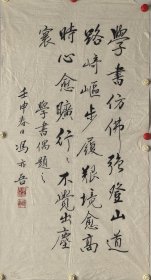 學書仿佛強登山道
路崎嶇步履艱境愈高
時心愈曠行〻不覺出塵
寰
學書偶題
壬申春日馮亦吾